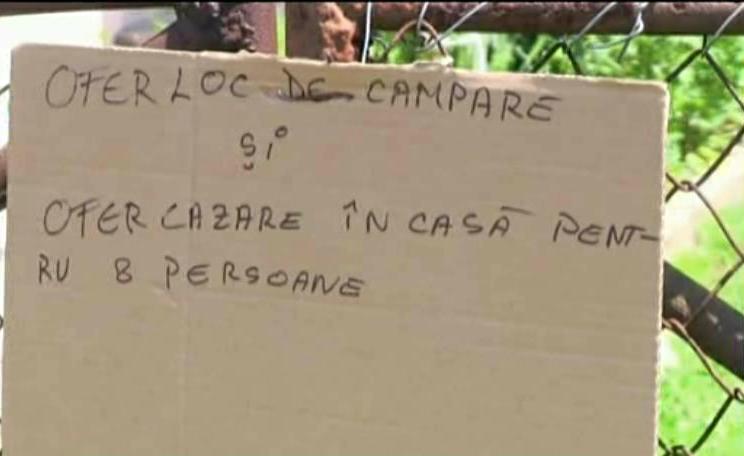 OFER LOC DE CAMPARE
ȘI
OFER CAZARE ÎN CASĂ PENT-
RU 8 PERSOANE